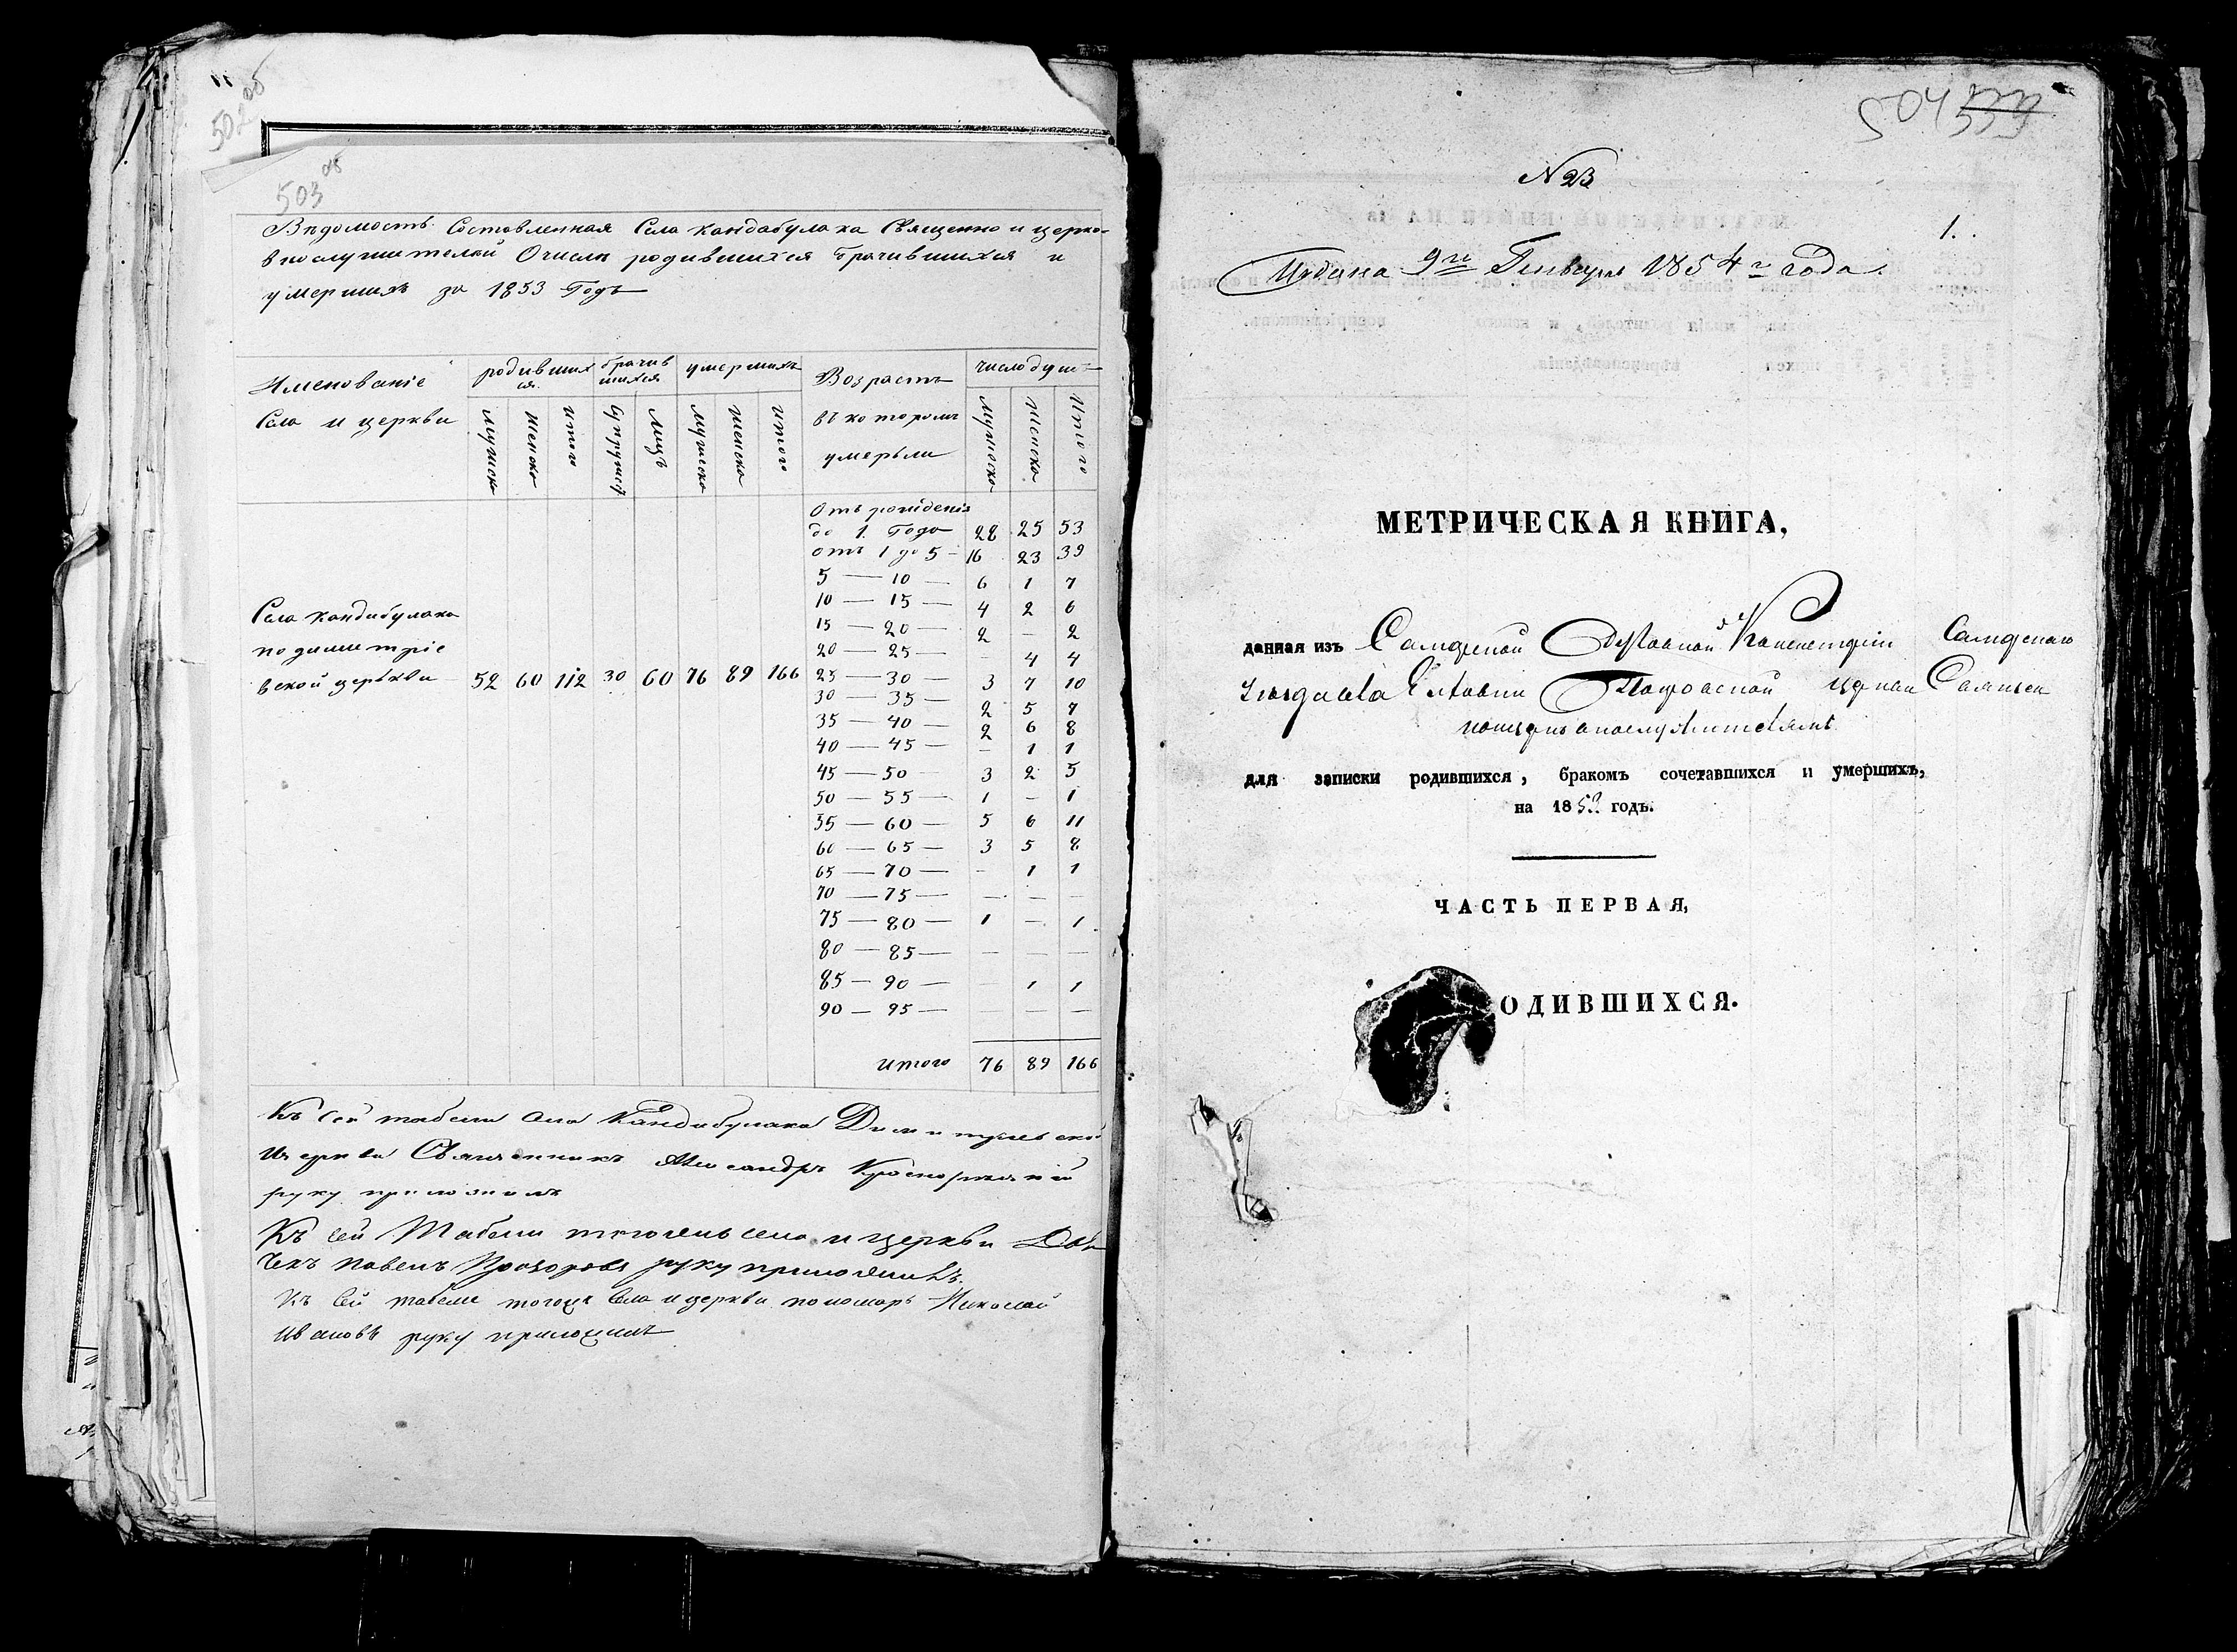 502 об
503 об
Вѣдомость Составленная Села Кандабулака Священно и церко-
внослужителей О числѣ родившихся бračившихся и
умершихъ за 1853 Годъ
Именованіе Села и церкви
родивших ся.
брачив шихся
умершихъ
Возрастъ въ которомъ умерьли
число душъ
Мужеска Женска Итого Супружеств Лицъ Мужеска Женска Итого Мужеска Женска Итого
Отъ рожденія
до 1. Года 28 25 53
отъ 1 до 5 — 16 23 39
5 — 10 — 6 1 7
10 — 15 — 4 2 6
15 — 20 — 2 — 2
20 — 25 — 4 4
25 — 30 — 3 7 10
30 — 35 — 2 5 7
35 — 40 — 2 6 8
40 — 45 — — 1 1
45 — 50 — 3 2 5
50 — 55 — 1 — 1
55 — 60 — 5 6 11
60 — 65 — 3 5 8
65 — 70 — — 1 1
70 — 75 — — — —
75 — 80 — 1 — 1
80 — 85 — — — —
85 — 90 — — 1 1
90 — 95 — — — —
Села Кандабулака
по димитріе
вской церькви 52 60 112 30 60 76 89 166
Итого 76 89 166
Къ сей табели села Кандабулака Димитріевской
Церкви Священникъ Александръ
руку приложилъ
Къ сей Табели тогоже села и церкви
Павелъ руку приложилъ.
Къ Сей табели тогожъ Села и церкви пономарь Николай
Ивановъ руку приложилъ
504
N 23
1.
9го Генваря 1854 г. года.
МЕТРИЧЕСКАЯ КНИГА,
данная изъ Самарской Духовной Консисторіи Самарскаго
церкви
для записки родившихся, бракомъ сочетавшихся и умершихъ,
на 1853 годъ.
ЧАСТЬ ПЕРВАЯ,
ОДИВШИХСЯ.